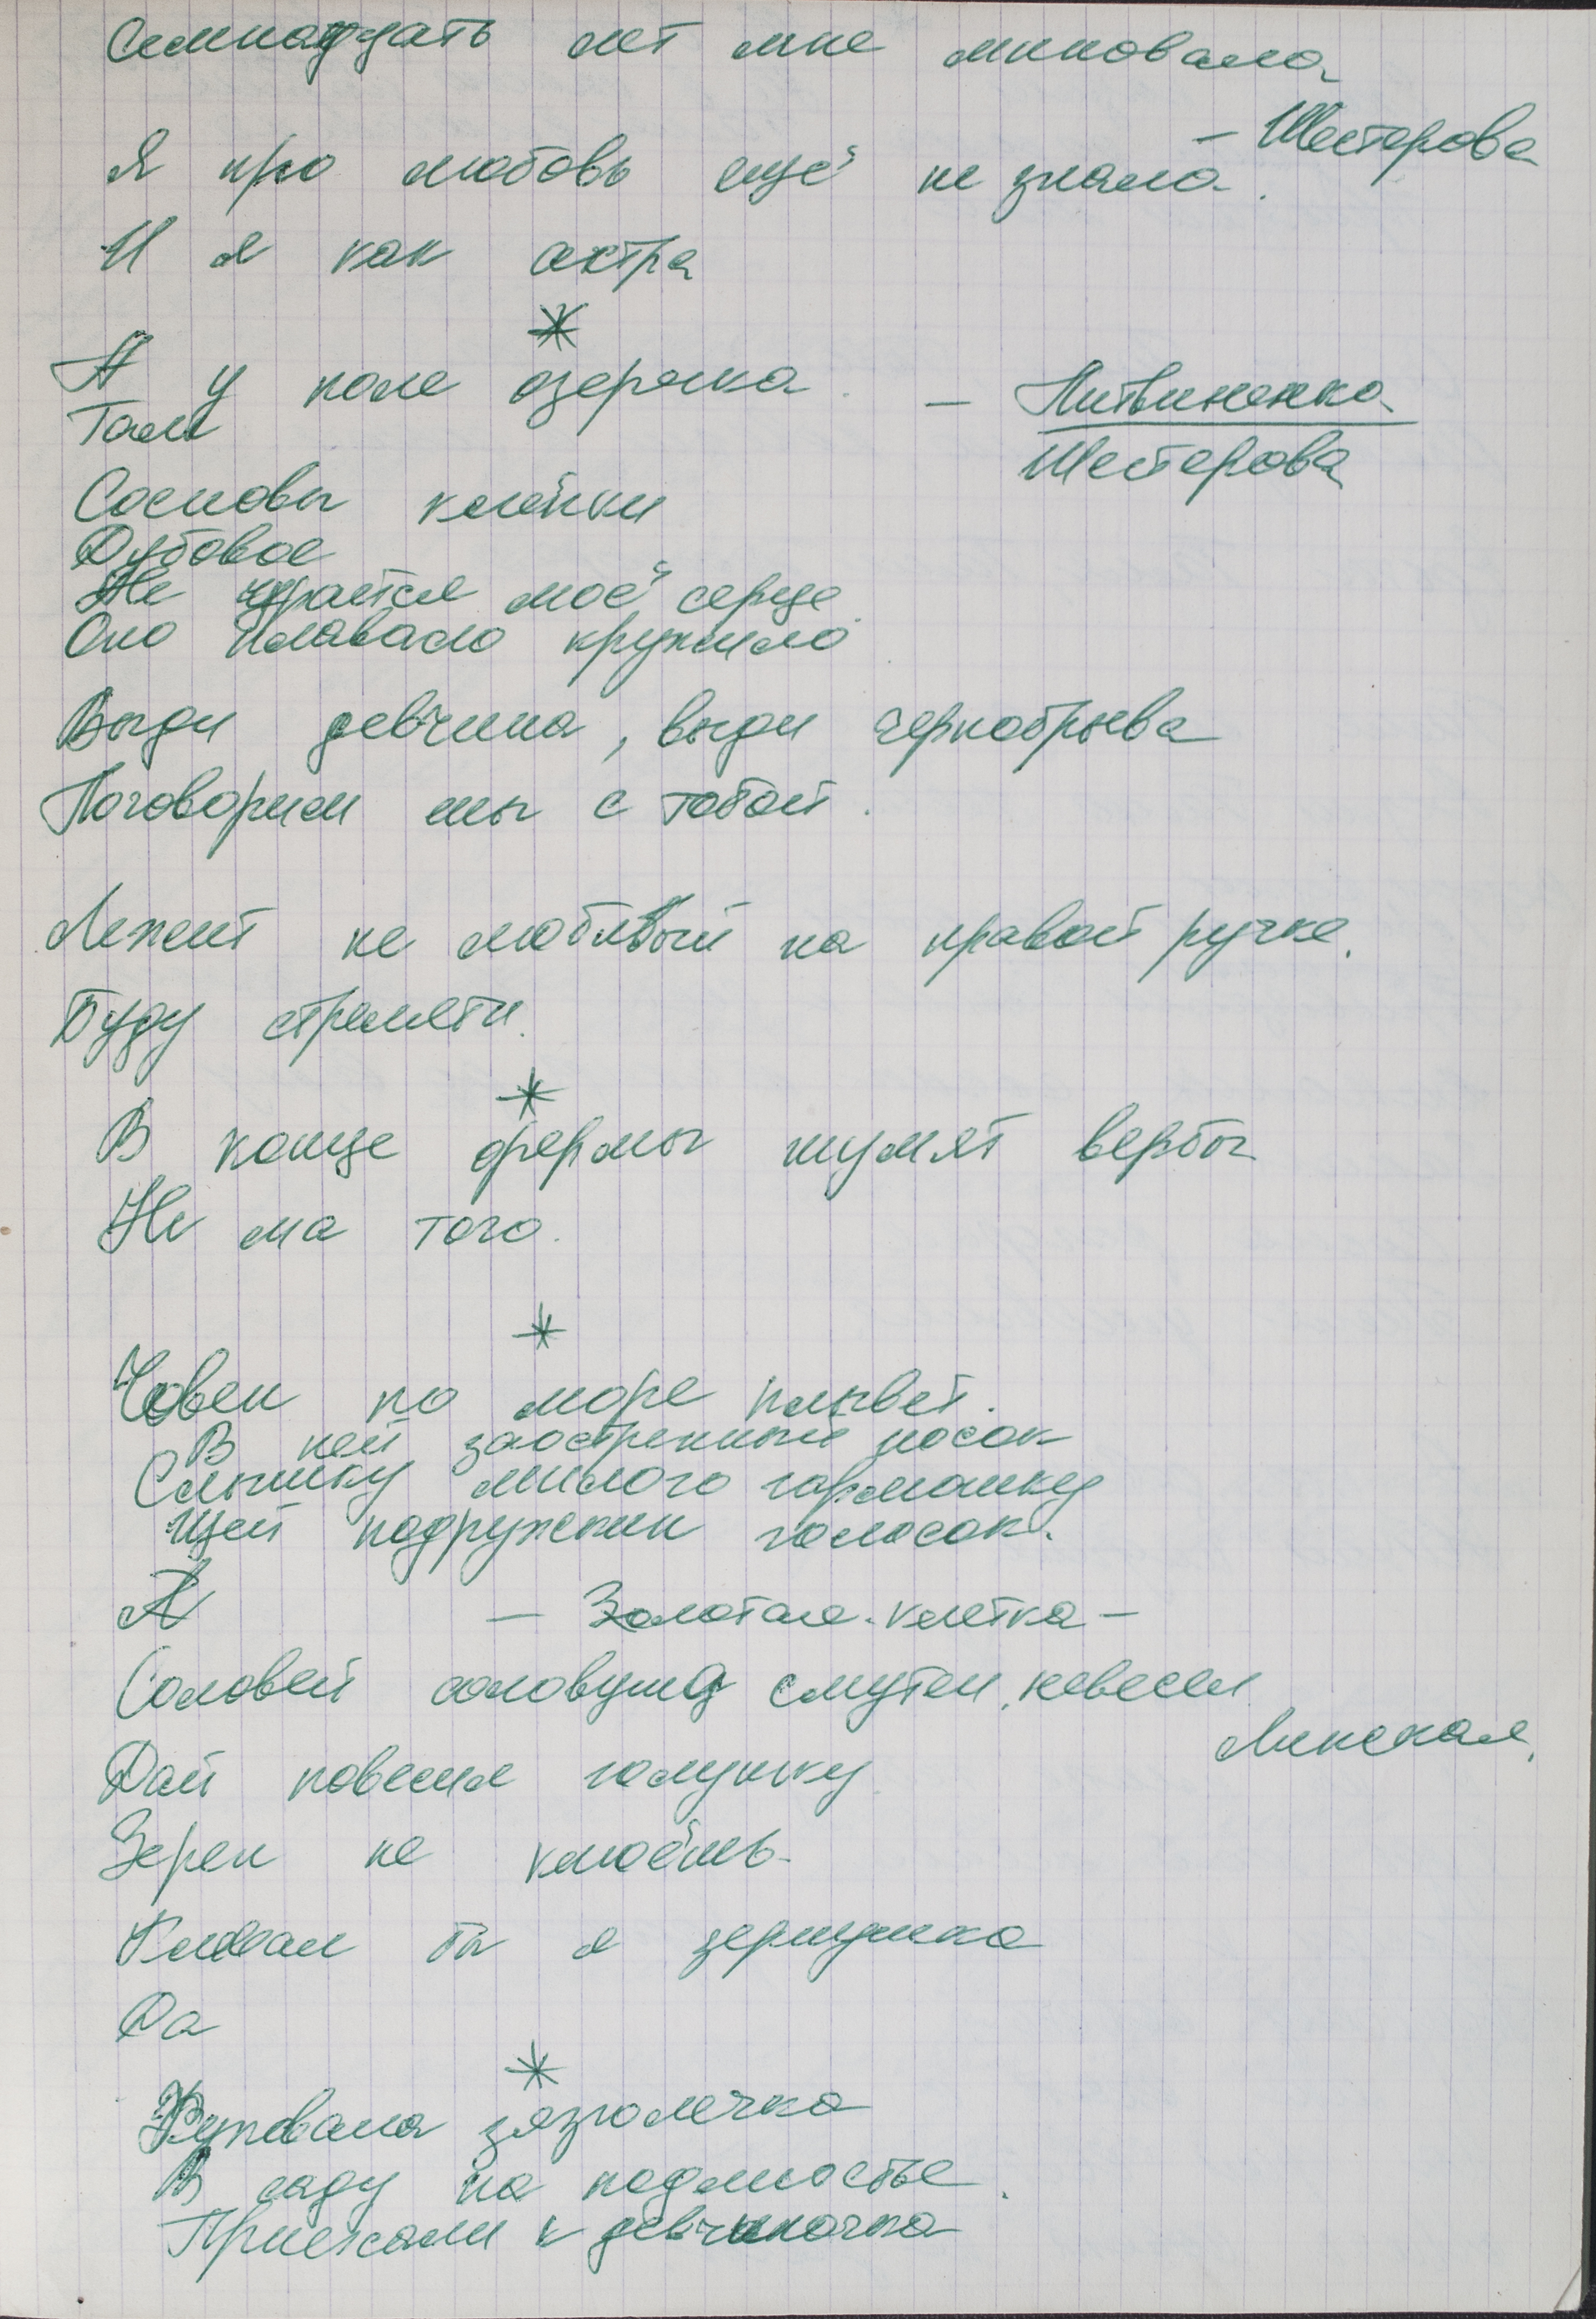 Семнадцать лет мне миновало
— Шестерова
Я про любовь ещё не знала.
И я как астра
*
А у поле озеречка — Литвиненко
Там Шестерова
Сосновы клёпки
Дубовое
Не удастся моё серце
Оно плавало кружило
Выди девчина, выди чернобрыва
Поговорим мы с тобой.
Лежит не любивый на правой ручке.
Буду стремети.
*
В конце фермы шумят вербы
Не ма того.
*
Човен по море плывет.
В ней заостренный носок
Слышку милого гармошку
Щей подружкин голосок.
А — Золотая клетка —
Соловей соловушка смутен, невесел
Линская.
Дай повесил голушку
Зерен не клюёшь
Клевал бы я зернушка
Да
*
Куковала зязюлечка
В саду на подмостье.
Приехали к девчиночка